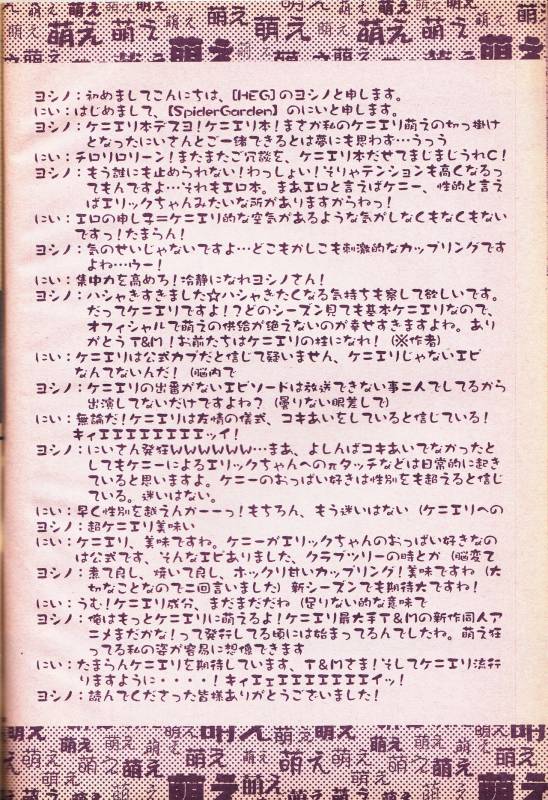 ヨシノ：初めましてこんにちは、【HEG】のヨシノと申します。
にい：はじめまして、【SpiderGarden】のにいと申します。
ヨシノ：ケニエリ本デスヨ！ケニエリ本！まさか私のケニエリ萌えの切っ掛け
となったにいさんとご一緒できるとは夢にも思わず…うっう
にい：チロリロリーン！またまたご冗談を、ケニエリ本だせてまじまじうれC！
ヨシノ：もう誰にも止められない！わっしょい！そりゃテンションも高くなるっ
てもんですよ…それもエロ本。まあエロと言えばケニー、性的と言え
ばエリックちゃんみたいな所がありますからわっ！
にい：エロの申し子＝ケニエリ的な空気があるような気がしなくもなくもない
ですっ！たまらん！
ヨシノ：気のせいじゃないですよ…どこもかしこも刺激的なカップリングです
よね…ウー！
にい：集中力を高めろ！冷静になれヨシノさん！
ヨシノ：ハシャぎすぎました☆ハシャぎたくなる気持ちも察して欲しいです。
だってケニエリですよ！？どのシーズン見ても基本ケニエリなので、
オフィシャルで萌えの供給が絶えないのが幸せすぎますよね。あり
がとうT&M！お前たちはケニエリの柱になれ！（※作者）
にい：ケニエリは公式カプだと信じて疑いません、ケニエリじゃないエピ
なんてないんだ！（脳内で
ヨシノ：ケニエリの出番がないエピソードは放送できない事二人でしてるから
出演してないだけですよね？（曇りない眼差しで）
にい：無論だ！ケニエリは友情の儀式、コキあいをしていると信じている！
キィエエエエエエエエッイ！
ヨシノ：にいさん発狂wwwwww…まあ、よしんばコキあいでなかったと
してもケニーによるエリックちゃんへのπタッチなどは日常的に起き
ていると思いますよ。ケニーのおっぱい好きは性別をも超えると信じ
ている。迷いはない。
にい：早く性別を越えんかーーっ！もちろん、もう迷いはない（ケニエリへの
ヨシノ：超ケニエリ美味い
にい：ケニエリ、美味ですね。ケニーがエリックちゃんのおっぱい好きなの
は公式です、そんなエピありました、クラブツリーの時とか（脳変て
ヨシノ：煮て良し、焼いて良し、ホックリ甘いカップリング！美味ですね（大
切なことなので二回言いました）新シーズンでも期待大ですね！
にい：うむ！ケニエリ成分、まだまだだね（足りない的な意味で
ヨシノ：俺はもっとケニエリに萌えるよ！ケニエリ最大手T&Mの新作同人ア
ニメまだかな！って発行してる頃には始まってるんでしたね。萌え狂
ってる私の姿が容易に想像できます
にい：たまらんケニエリを期待しています、T&Mさま！そしてケニエリ流行
りますように・・・・！キィエェエエエエエエエイッ！
ヨシノ：読んでくださった皆様ありがとうございました！